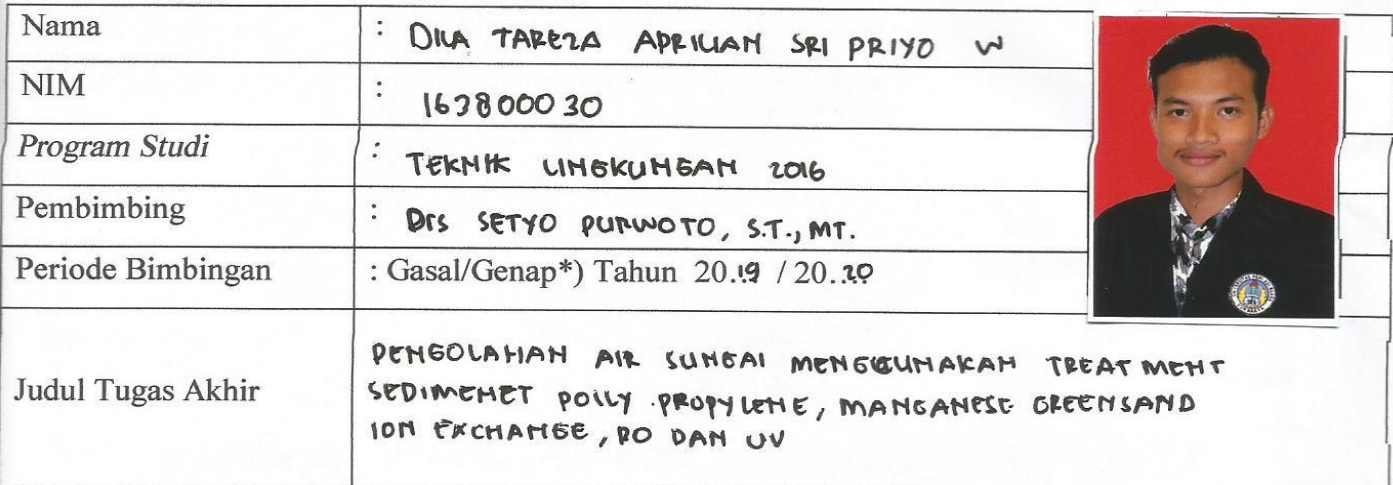 Nama : DILA TAREZA APRILIAN SRI PRIYO W
NIM : 163800030
Program Studi : TEKNIK LINGKUNGAN 2016
Pembimbing : Drs SETYO PURWOTO, S.T., MT.
Periode Bimbingan : Gasal/Genap*) Tahun 20.19 / 20.20
Judul Tugas Akhir
PENGOLAHAN AIR SUNGAI MENGGUNAKAN TREATMENT
SEDIMENET POLLY PROPYLENE, MANGANESE GREENSAND
ION EXCHANGE, RO DAN UV